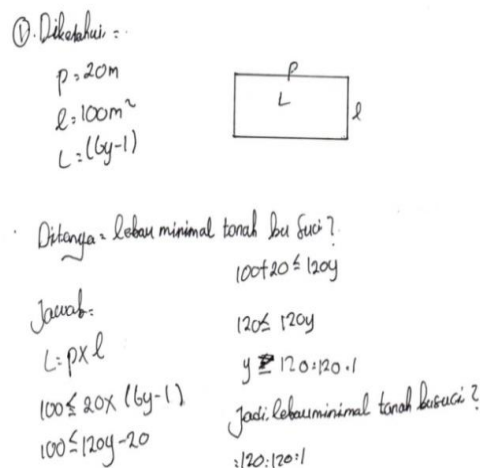 ①. Diketahui =
p = 20m
l = 100m²
L = (6y-1)
p
L
l
Ditanya = lebau minimal tanah bu Suci?
Jawab =
L = p x l
100 ≤ 20 x (6y-1)
100 ≤ 120y - 20
100 + 20 ≤ 120y
120 ≤ 120y
y ≥ 120:120 . 1
Jadi. lebauminimal tanah busuci?
:120:120:1